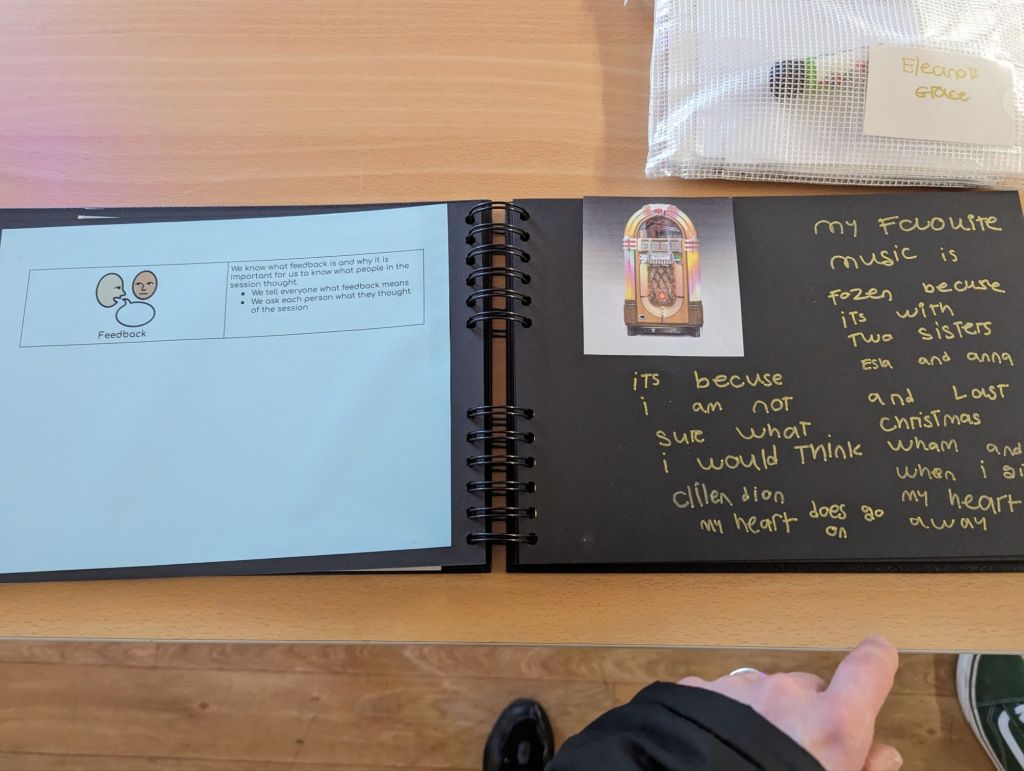 Eleanor
Grace
We know what feedback is and why it is
important for us to know what people in the
session thought.
We tell everyone what feedback means
We ask each person what they thought
of the session
Feedback
my Favouite
music is
fozen becuse
its with
Two sisters
Esla and anna
and Last
christmas
wham and
when i
my heart
away
iTs becuse
i am not
sure what
i would Think
clilen dion
my heart does go
on